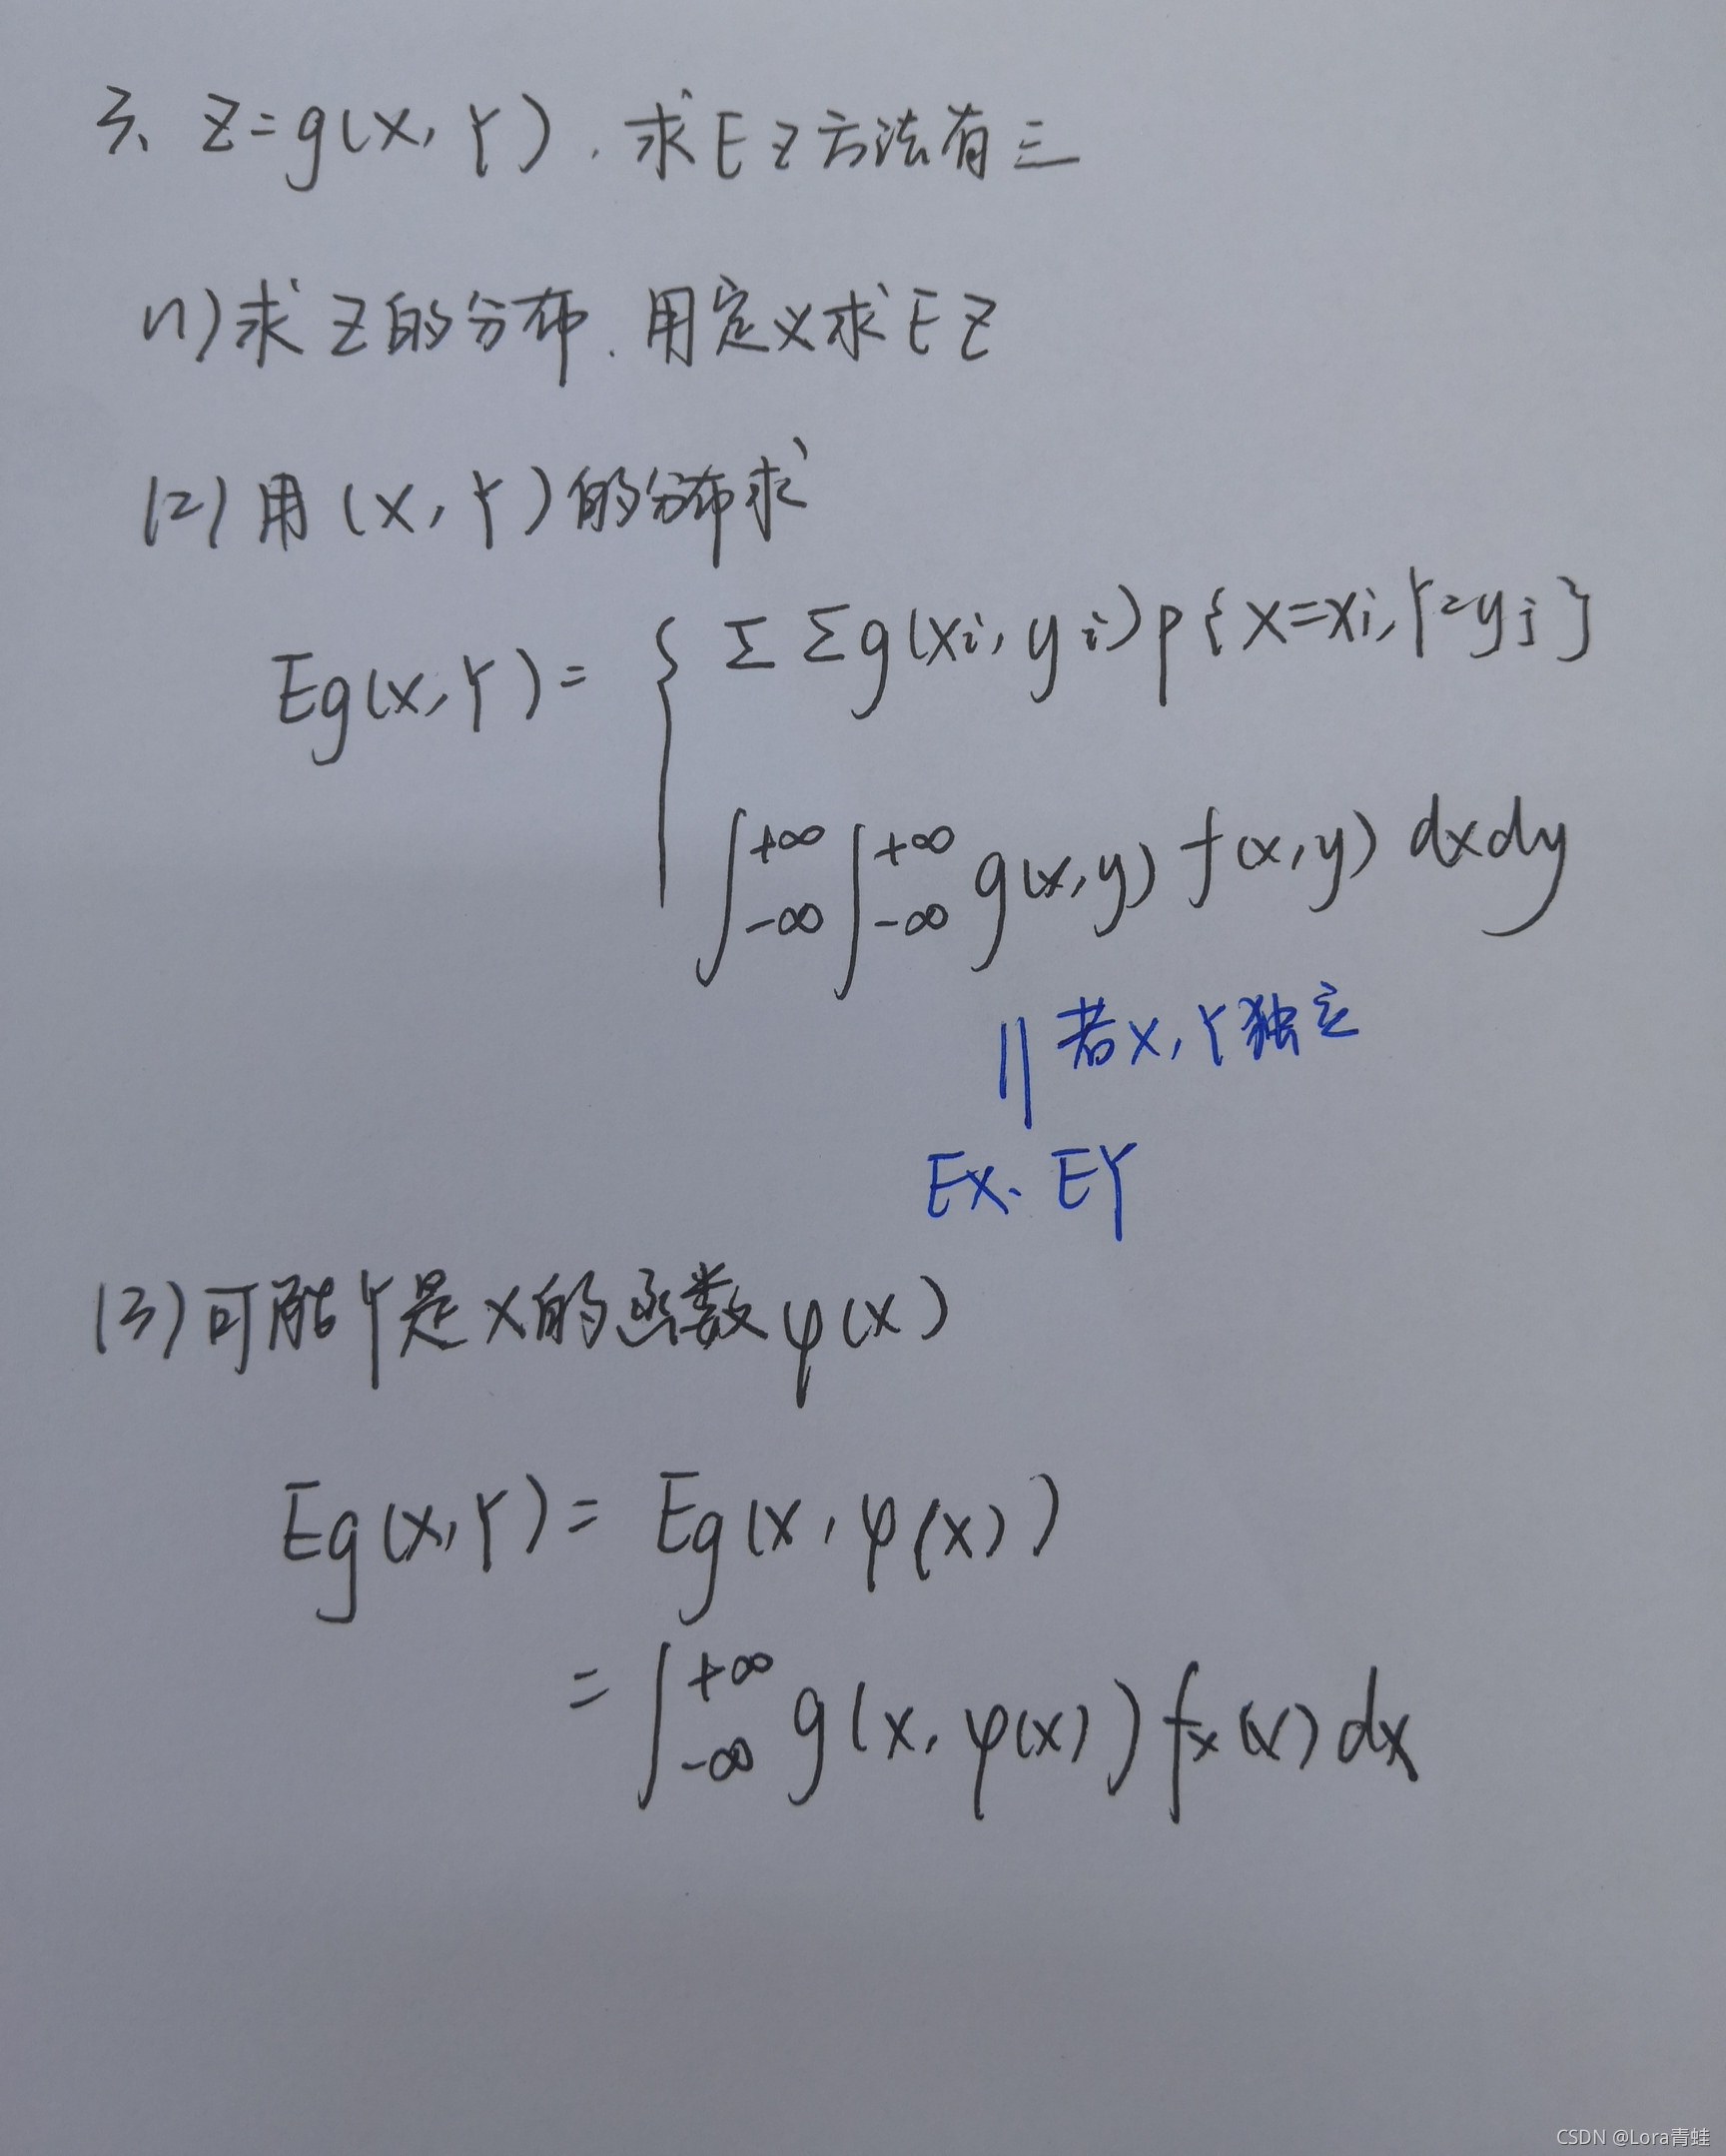 3、Z=g(X,Y),求EZ方法有三
(1)求Z的分布,用定义求EZ
(2)用(X,Y)的分布求
Eg(X,Y)= { ΣΣg(xi,yi)P{X=xi,Y=yj}
∫+∞ -∞ ∫+∞ -∞ g(x,y)f(x,y)dxdy
|| 若X,Y独立
EX·EY
(3)可能Y是X的函数φ(X)
Eg(X,Y)=Eg(X,φ(X))
=∫+∞ -∞ g(x,φ(x))fx(x)dx
CSDN @Lora青蛙